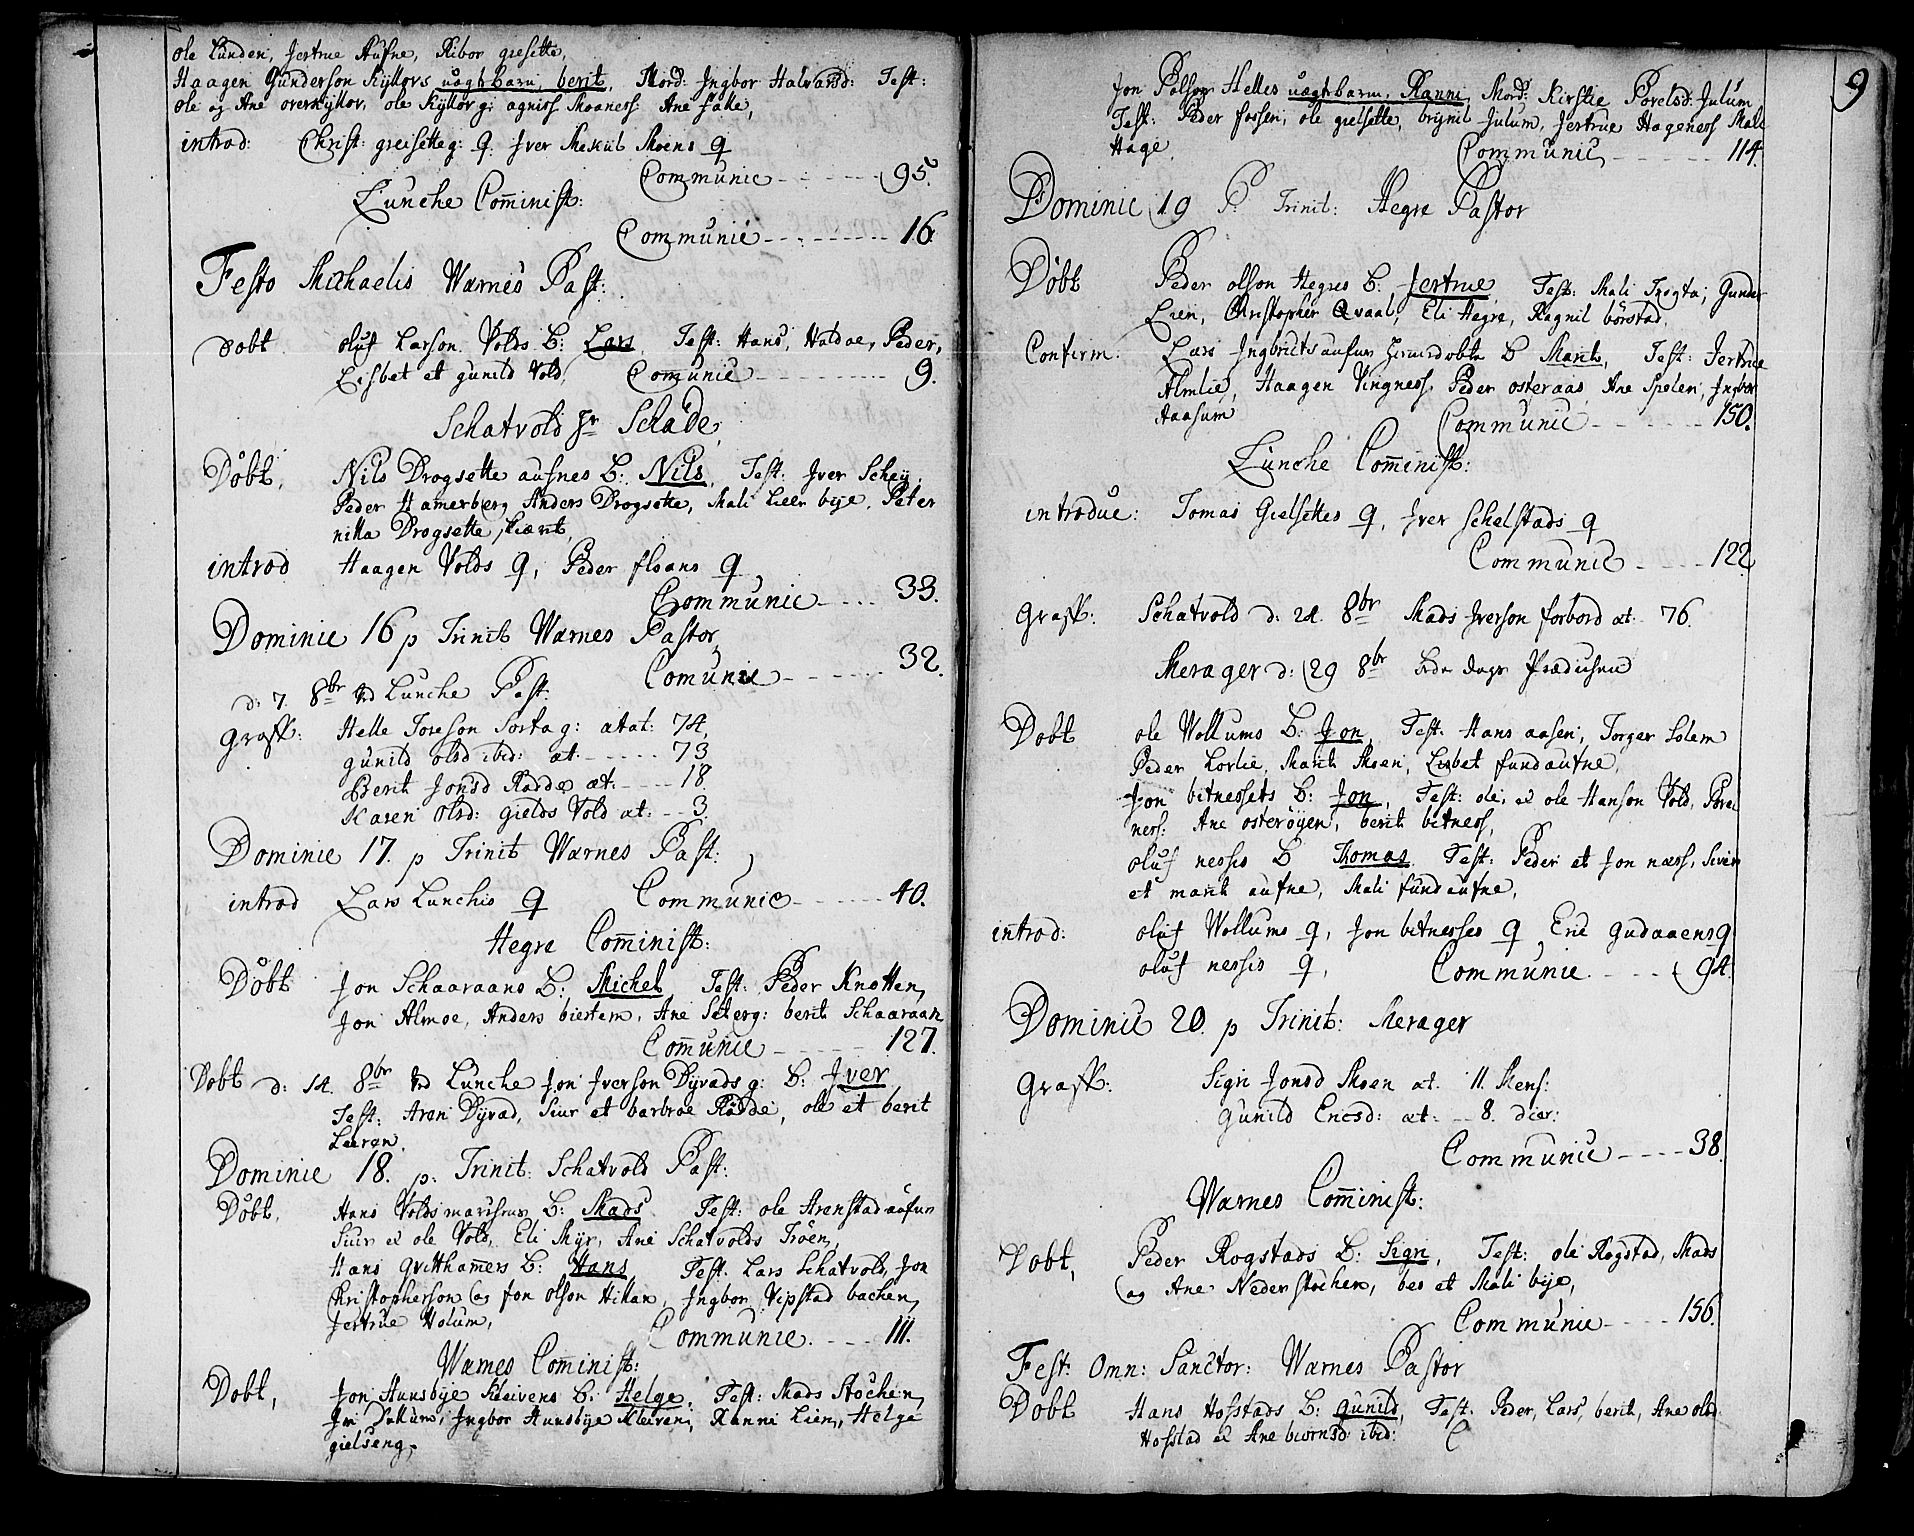 ole Lunden, Jertrue Aufne, Ribor gresette,
Haagen Gunderson Kyllovs uægtebarn, berit, Mord: Ingbor Halvarsd: Test:
ole og Ane overkyllov, ole Kyllov g: agniss Moaness Ane falle,
introd: Christ: greisette g: q. Iver Mekiil Moens q
Communic - - - - - 95.
Lunche Com̄inist:
Communic - - - - - 16.
Festo Michaelis Wærnes Past:
Døbt oluf Larson Volds B: Lars Test: Hans, Haldor, Peder,
Lisbet et gunild Vold, Communic - - - - - 9.
Schatvold Hr Schade,
Døbt, Nils Drogsette aufnes B: Nils, Test: Iver Schey,
Peder Hamerberg Anders Drogsette, Mali Leer bye, Peter
nilla Drogsette,
introd Haagen Volds q, Peder floans q
Communic - - - - 33.
Dominic 16 p Trinit Wærnes Pastor,
Comunic - - - - - 32.
d. 7. 8br Lunche Past:
Graff: Helle Toreson Sorta g: ætat: 74,
gunild olsd ibid: æt. - - - - 73
Berit Jonsd Rodde æt: - - - 18.
Karen olsd: gields Vold æt: - - 3.
Dominic 17. p Trinit Wærnes Past:
introd Lars Lunchis q Communic - - - - - 40.
Hegre Com̄inist:
Døbt Jon Schaaraans B: Michel Test: Peder Knotten,
Jon Almoe, Anders biertem, Ane Seterg: berit Schaaraan
Com̄unic - - - - - 127.
Døbt d: 14. 8br Lunche Jon Iverson Dyvads g: B: Iver,
Test: Aren Dyvad, Siur et barbroe Rodde, ole et berit
Leeren.
Dominic 18. p. Trinit: Schatvold Past:
Døbt, Hans Volds B: Mads Test: ole Arenstad aufun
Siur et ole Vold, Eli Myr, Ane Schatvolds Trøen,
Hans qvithamers B: Hans Test: Lars Schatvold, Jon
Christopherson og Jon olson Hillan, Ingbor Vipstad bachen,
Jertrue Volum,
Communic. - - - 111.
Wærnes Com̄inist:
Døbt, Jon Hunsbye Kleivens B: Helge. Test: Mads Stochen,
Ingbor Hunsbye Kleiven, Ranni Lien, Helge
gielseng.
9
Jon Pølson Helles uægtebarn, Ranni, Mord: Kirstie Povelsd: Julum,
Test: Peder fossen, ole gielsette, brynil Julum, Jertrue Hageness Mali
Hage. Communic - - - - - 114.
Dominic 19 P: Trinit: Hegre Pastor
Døbt Peder olson Hegres B: Jertrue Test: Mali Trøgta, Gunder
Lien, Christopher Qvaal, Eli Hegre, Ragnil børstad,
Confirm: Lars Ingbrictsaufun hiemdøbte B Marit, Test: Jertrue
Almlie, Haagen Vingness, Peder osteraas, Ane Spelen, Ingbor
Aasum Communic - - - - - 150.
Lunche Com̄inist:
introduc: Tomas Gielsettes q, Iver Schelstads q
Communic - - - - 122
Graff: Schatvold d: 24. 8br Mads Iverson forbord æt: 76.
Merager d: 29 8br Bede dags Prædichen
Døbt ole Vollums B: Jon, Test: Hans aasen, Torger Solem
Peder Lorlie, Marit Moen, Lisbet fundaufne,
Jon bitnessets B: Jon, Test: ole, et ole Hanson Vold,
ness: Ane osterøyen, berit bitness,
oluf nessis B Thomas Test: Peder et Jon næss, Siver
et marit aufne, Mali fundaufne,
introd: oluf Vollums q, Jon bitnesses q Eric gudaaens q
oluf nessis q, Communic. - - - - 94.
Dominic 20. p Trinit: Merager
Graff: Sigri Jonsd Moen æt. 11. Mens:
Gunild Ericsd: æt: - - 8. dier:
Communic - - - - 38.
Wærnes Com̄inist:
Døbt, Peder Rogstads B: Sigri, Test: ole Rogstad, Mads
og Ane Nederstochen, beo et Mali bye,
Communic - - - - 156.
Fest: Omn: Sanctor: Wærnes Pastor
Døbt Hans Hofstads B: gunild, Test: Peder, Lars, berit, Ane olsd:
Hofstad et Ane biørnsd: ibid: